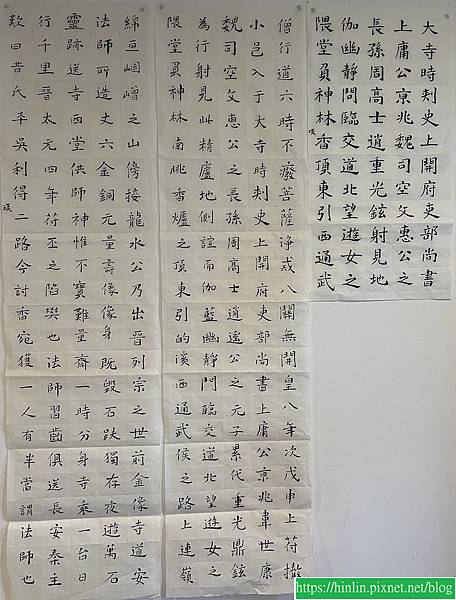 大寺時刾史上開府吏部尚書
上庸公京兆魏司空文惠公之
長孫周高士逍重光鉉射見地
伽幽靜問臨交道北望遊女之
隈堂員神林香頂東引西通武
瑛
僧行道六時不癈菩薩淨戒八關無開皇八年次戊申上苻撤
小邑入于大寺時刾史上開府吏部尚書上庸公京兆韋世康
魏司空文惠公之長孫周高士逍遙公之元子累代重光鼎鉉
為行射見此精廬地側誼而伽藍幽靜門臨交道北望遊女之
隈堂員神林南眺香爐之頂東引的溪西通武侯之路上連嶺
綿亘崓嶒之山傍接龍水公乃出晉列宗之世前金像寺道安
法師所造丈六金銅元量壽像像身既毀石趺獨存夜遊萬石
靈跡送寺西堂供師神惟不寶難量齋一時分身寺一台日
行千里晉太元四年苻丕之陷樊也法師習齒俱送長安秦主
欵曰昔氏平吳利得二路今討沓宛獲一人有半當謂法師也
瑛
https://hinlin.pixnet.net/blog